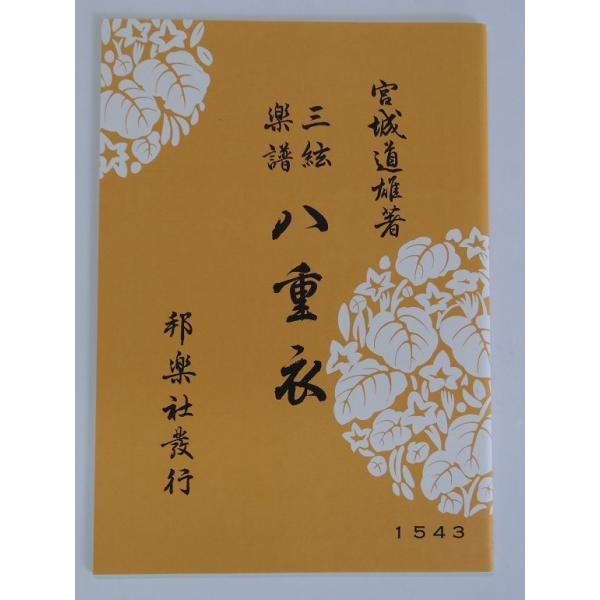 宮城道雄著
三絃
楽譜
八重衣
邦楽社發行
1543